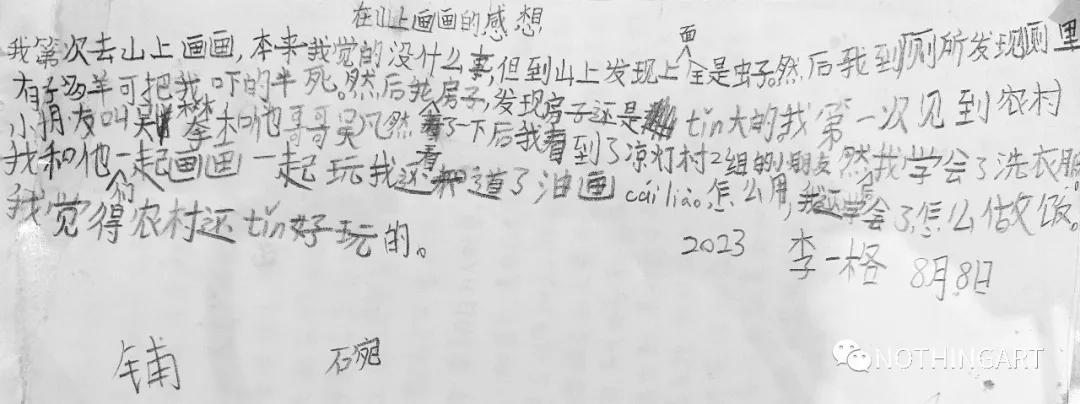 在山上画画的感想
我第次去山上画画,本来我觉的没什么事,但到山上发现上面全是虫子。然后我到厕所发现厕里
有子羊可把我吓的半死。然后我看房子,发现房子还是tin大的我第一次见到农村
小朋友叫吴李林和他哥哥吴凡然了一下后我看到了凉灯村2组的小朋友然我学会了洗衣服
我和他们一起画画一起玩我还知道了油画cái liào,怎么用,我还学会了怎么做饭。
我觉得农村还tin好玩的。
2023 李一格 8月8日
铺 石宛
NOTHINGART